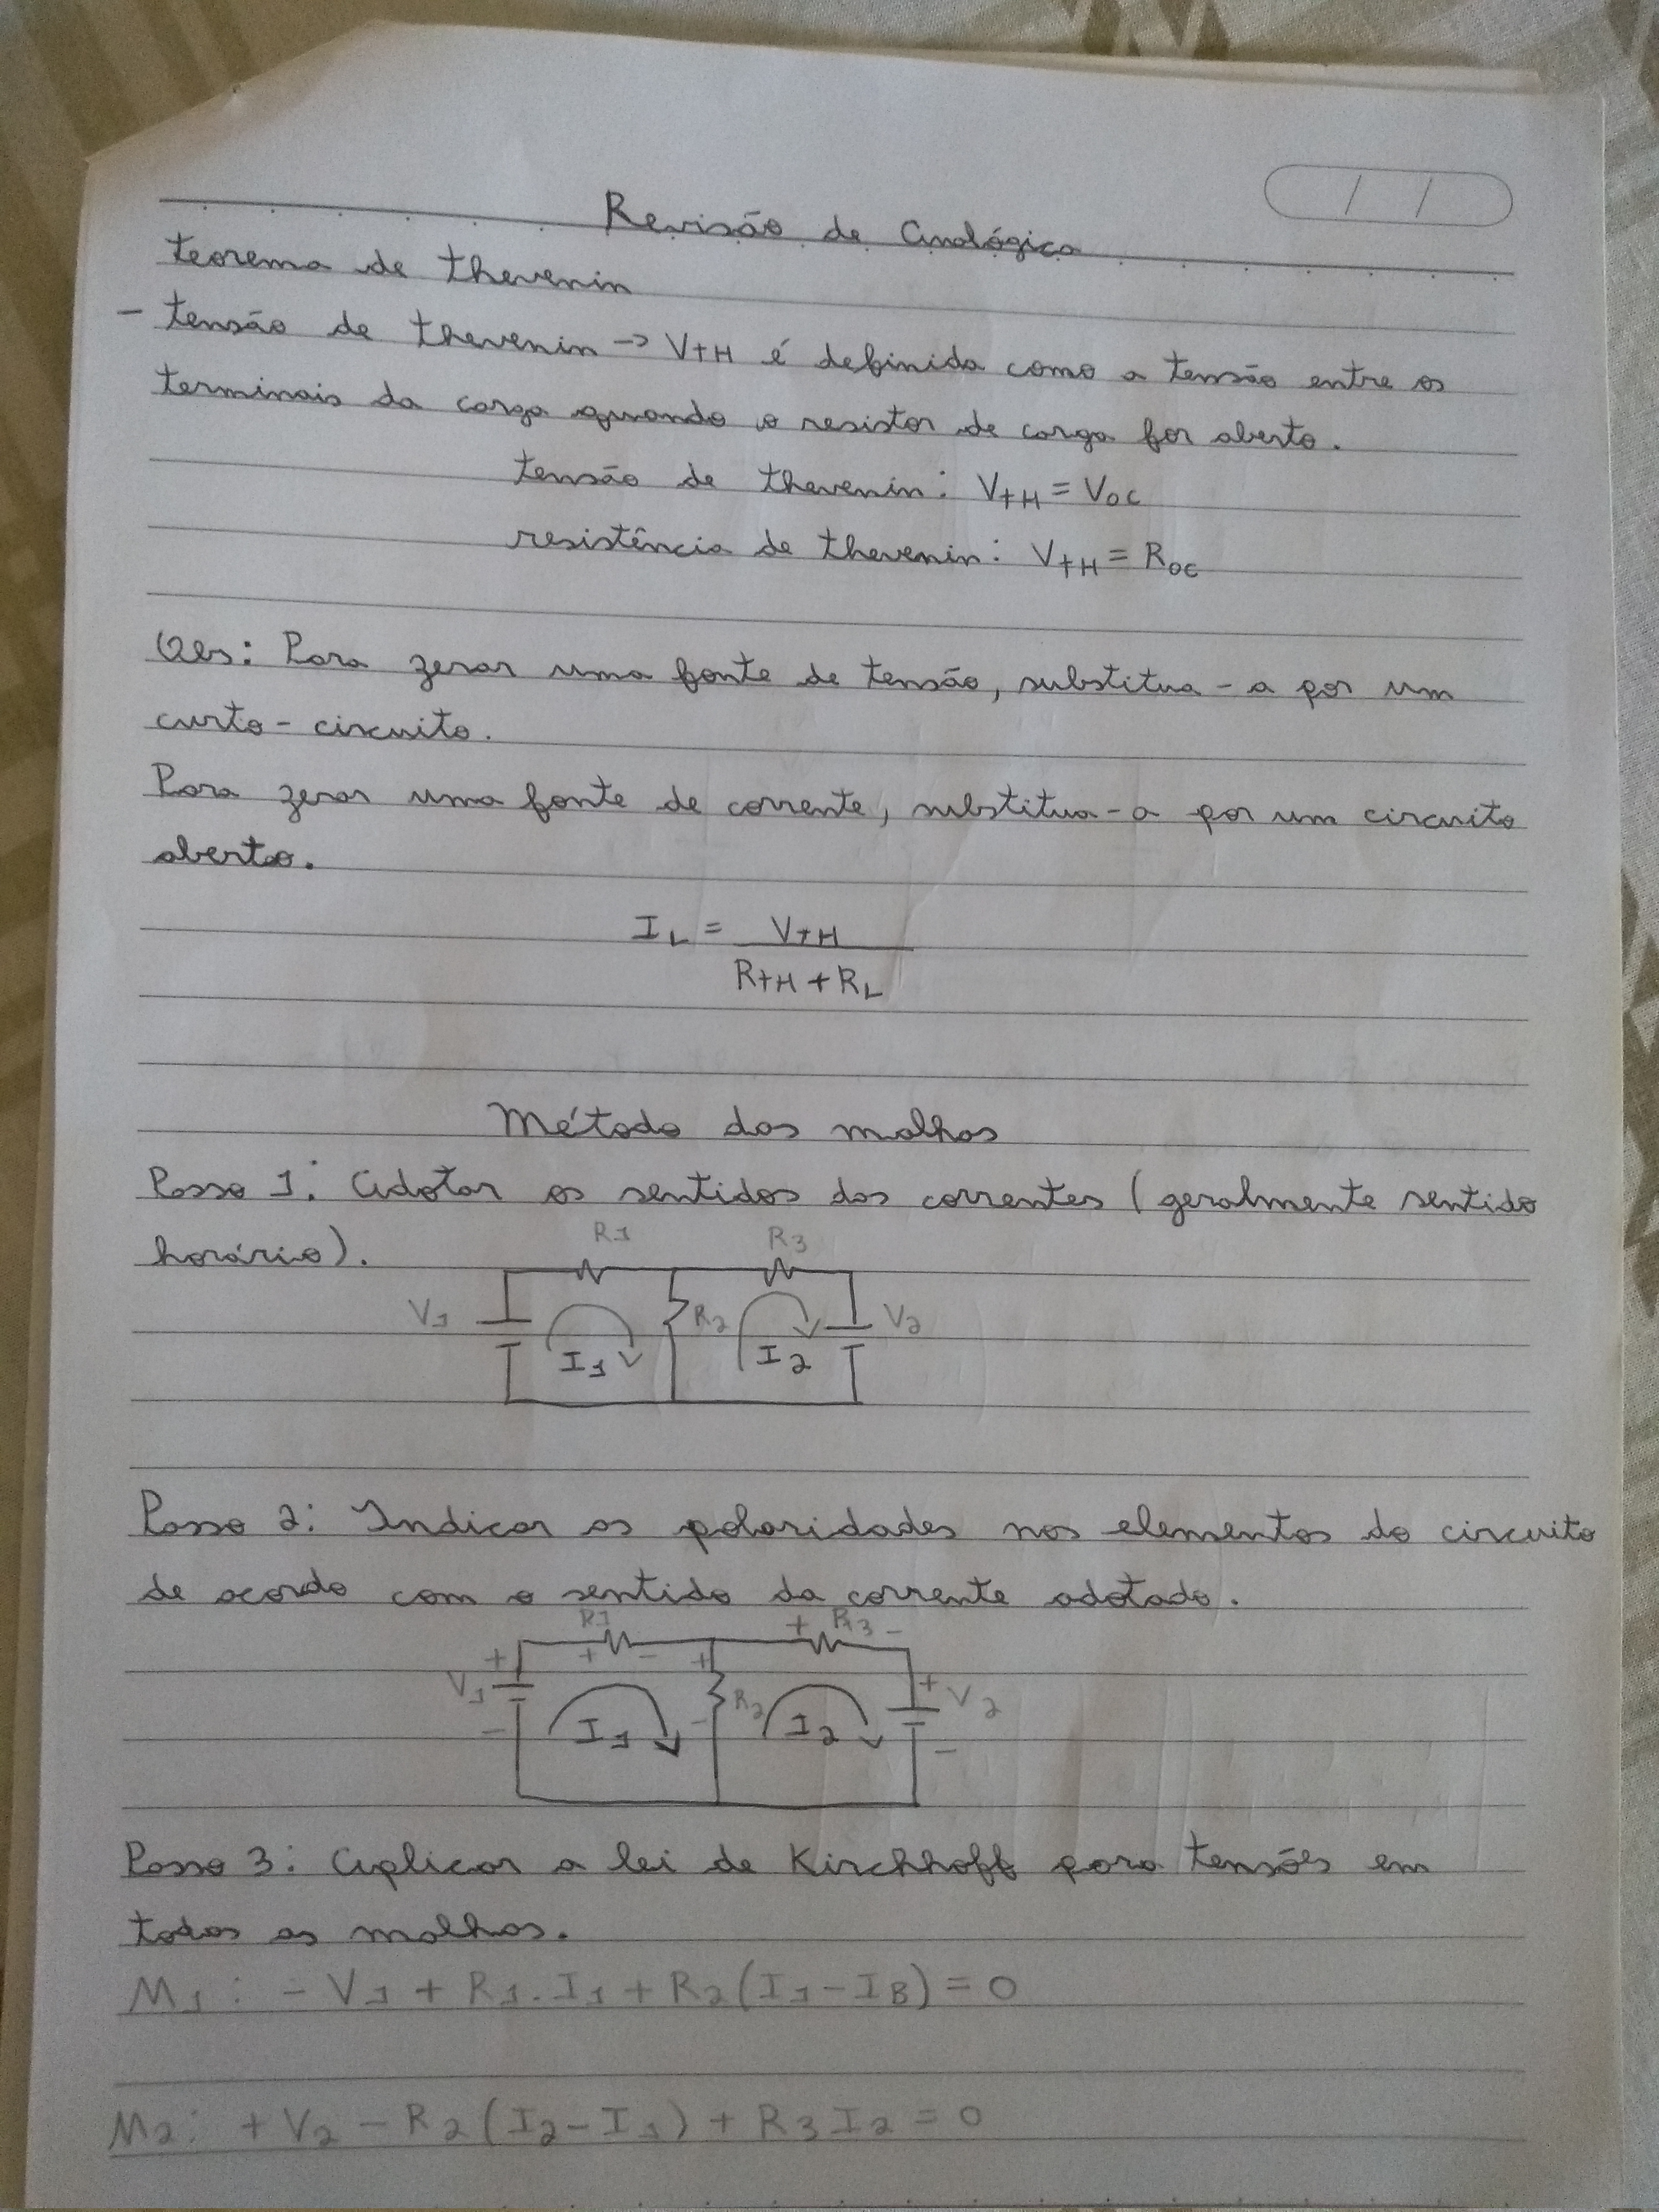 Revisão de Analógica
teorema de thevenin
- tensão de thevenin -> VTH é definida como a tensão entre os
terminais da carga quando o resistor de carga for aberto.
tensão de thevenin: VTH = VOC
resistência de thevenin: VTH = ROC
Obs: Para zerar uma fonte de tensão, substitua-a por um
curto-circuito.
Para zerar uma fonte de corrente, substitua-a por um circuito
aberto.
IL = VTH
RTH + RL
Método das malhas
Passo 1: Adotar os sentidos das correntes (geralmente sentido
horário).
R1 R3
V1 I1 R2 I2 V2
Passo 2: Indicar as polaridades nos elementos do circuito
de acordo com o sentido da corrente adotado.
R1 + R3 -
+ + - + +
V1 R2 V2
- I1 - I2 -
Passo 3: Aplicar a lei de Kirchhoff para tensões em
todas as malhas.
M1: - V1 + R1.I1 + R2(I1-IB) = 0
M2: + V2 - R2(I2-I1) + R3I2 = 0